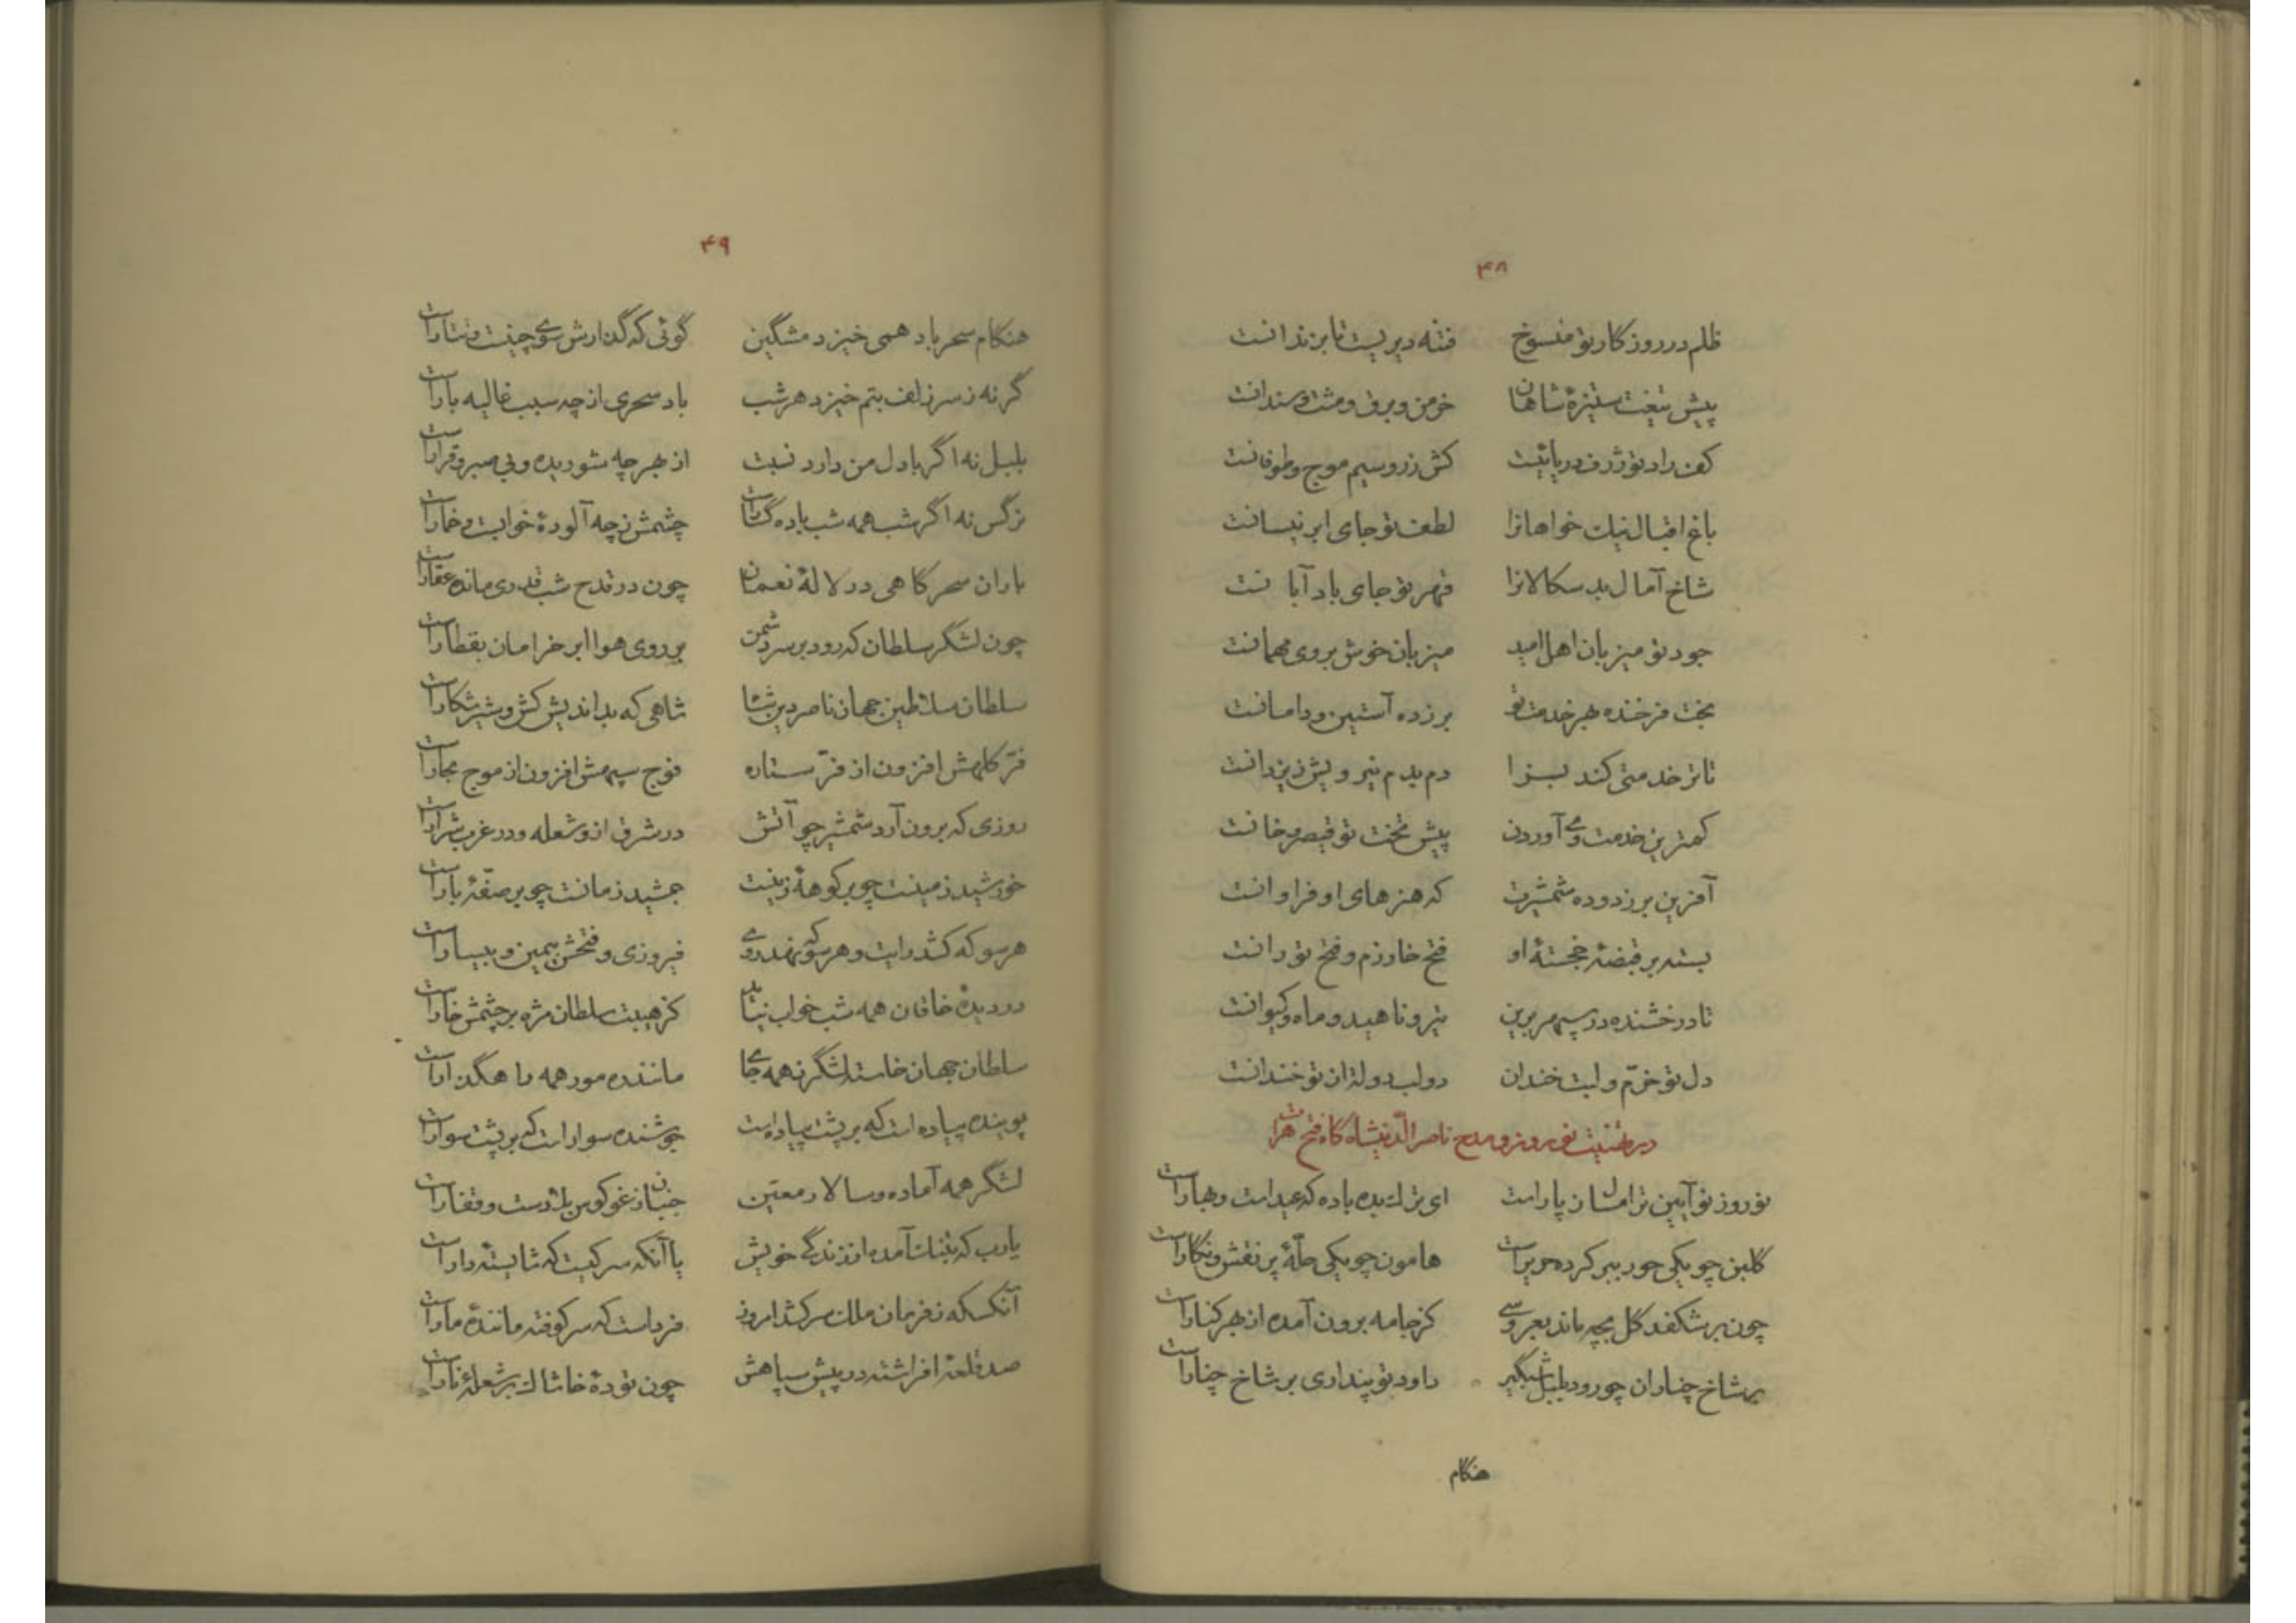 ۴۸
ظلم در روزگار تو منسوخ فتنه دیریست تا بزندانست
پیش تیغت ستیزهٔ شاهان خرمن و برق و مشت و سندانست
کف راد تو ژرف دریائیست کش زر و سیم موج و طوفانست
باغ اقبال نیک خواهانرا لطف تو جای ابر نیسانست
شاخ آمال بد سکالانرا قهر تو جای باد آبانست
جود تو میزبان اهل امید میزبان خوش بروی مهمانست
بخت فرخنده بهر خدمت تو بر زده آستین و دامانست
تا ترا خدمتی کند بسزا دم بدم نیرویش ز یزدانست
کمترین خدمت وی آوردن پیش تخت تو قیصر و خانست
آفرین بر زدوده شمشیرت که هنرهای او فراوانست
بسته بر قبضهٔ خجستهٔ او فتح خوارزم و فتح تورانست
تا درخشنده در سپهر برین تیر و ناهید و ماه و کیوانست
دل تو خرّم و لبت خندان دو لب دولت از تو خندانست
در تهنیت نوروز و مدح ناصر الدّینشاه گاه فتح هرات
نوروز نو آیین تر امسال ز پار است ای ترک بده باده که عید است و بهار است
گلبن چو یکی حور ببر کرده حریر است هامون چو یکی حلّهٔ پر نقش و نگار است
چون بر شکفد گل بچه ماند بعروسی کز جامه برون آمده از بهر کنار است
بر شاخ چناران چو رود بلبل شبگیر داود تو پنداری بر شاخ چنار است
هنگام
۴۹
هنگام سحر باد همی خیزد مشگین گوئی که گذارش سوی چینست و تتار است
گر نه ز سر زلف بتم خیزد هر شب باد سحری از چه سبب غالیه بار است
بلبل نه اگر با دل من دارد نسبت از بهر چه شوریده و بی صبر و قرار است
نرگس نه اگر شب همه شب باده گسار است چشمش ز چه آلودهٔ خوابست و خمار است
باران سحرگاهی در لالهٔ نعمان چون در قدح شب قدری مانده عقار است
چون لشگر سلطان که رود بر سر دشمن بر روی هوا ابر خرامان بقطار است
سلطان سلاطین جهان ناصر دین شاه شاهی که بداندیش کش و شیر شکار است
فرّ کلهش افزون از فرّ ستاره فوج سپهش افزون از موج بحار است
روزی که برون آرد شمشیر چو آتش در شرق ازو شعله و در غرب شرار است
خورشید زمینست چو بر کوههٔ زینست جمشید زمانست چو بر صفّهٔ بار است
هر سو که کشد رایت و هر سو که نهد روی فیروزی و فتحش بیمین و بیسار است
در دیدهٔ خاقان همه شب خواب نیاید کز هیبت سلطان مژه بر چشمش خار است
سلطان جهان خاسته لشگر ز همه جای ماننده مور همه راهگذار است
پوینده پیاده است که بر پشت پیاده است جوشنده سوار است که بر پشت سوار است
لشگر همه آماده و سالار معیّن جنبان ز غو کوس بلاد ست و قفار است
یا رب که بتنگ آمده از زندگی خویش یا آنکه سر کیست که شایستهٔ دار است
آنکسکه ز فرمان ملک سرکشد امروز فرداست که سرکوفته مانندهٔ مار است
صد قلعهٔ افراشته در پیش سپاهش چون تودهٔ خاشاک بر شعلهٔ نار است